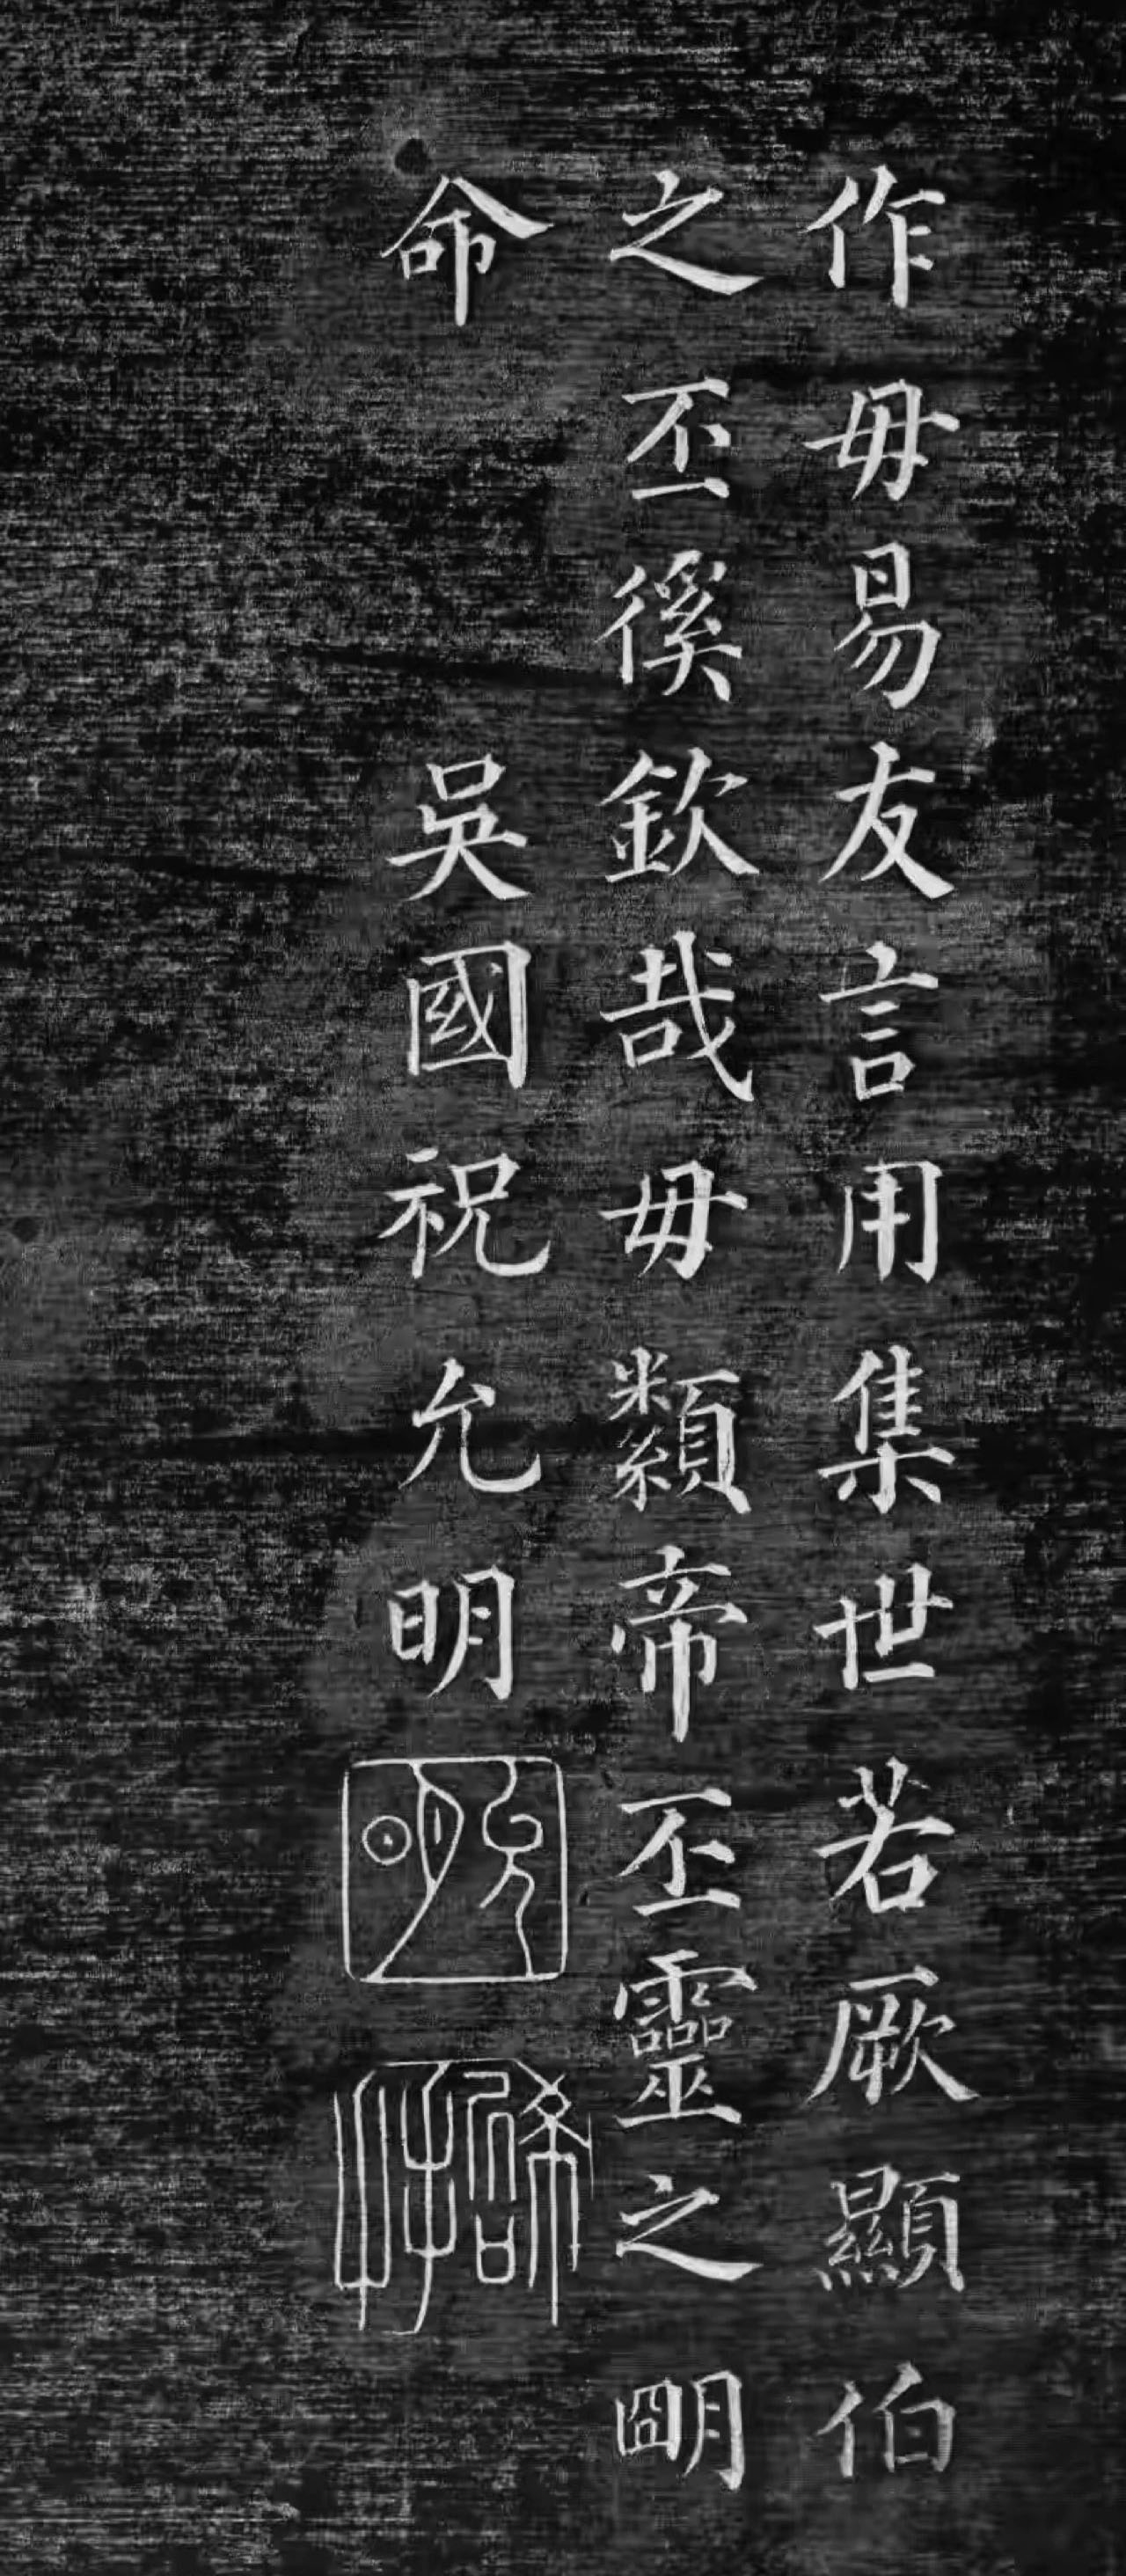 作毋易友言用集世若厥顯伯
之丕徯欽哉毋纇帝丕靈之朙
命
吳國祝允明
允明